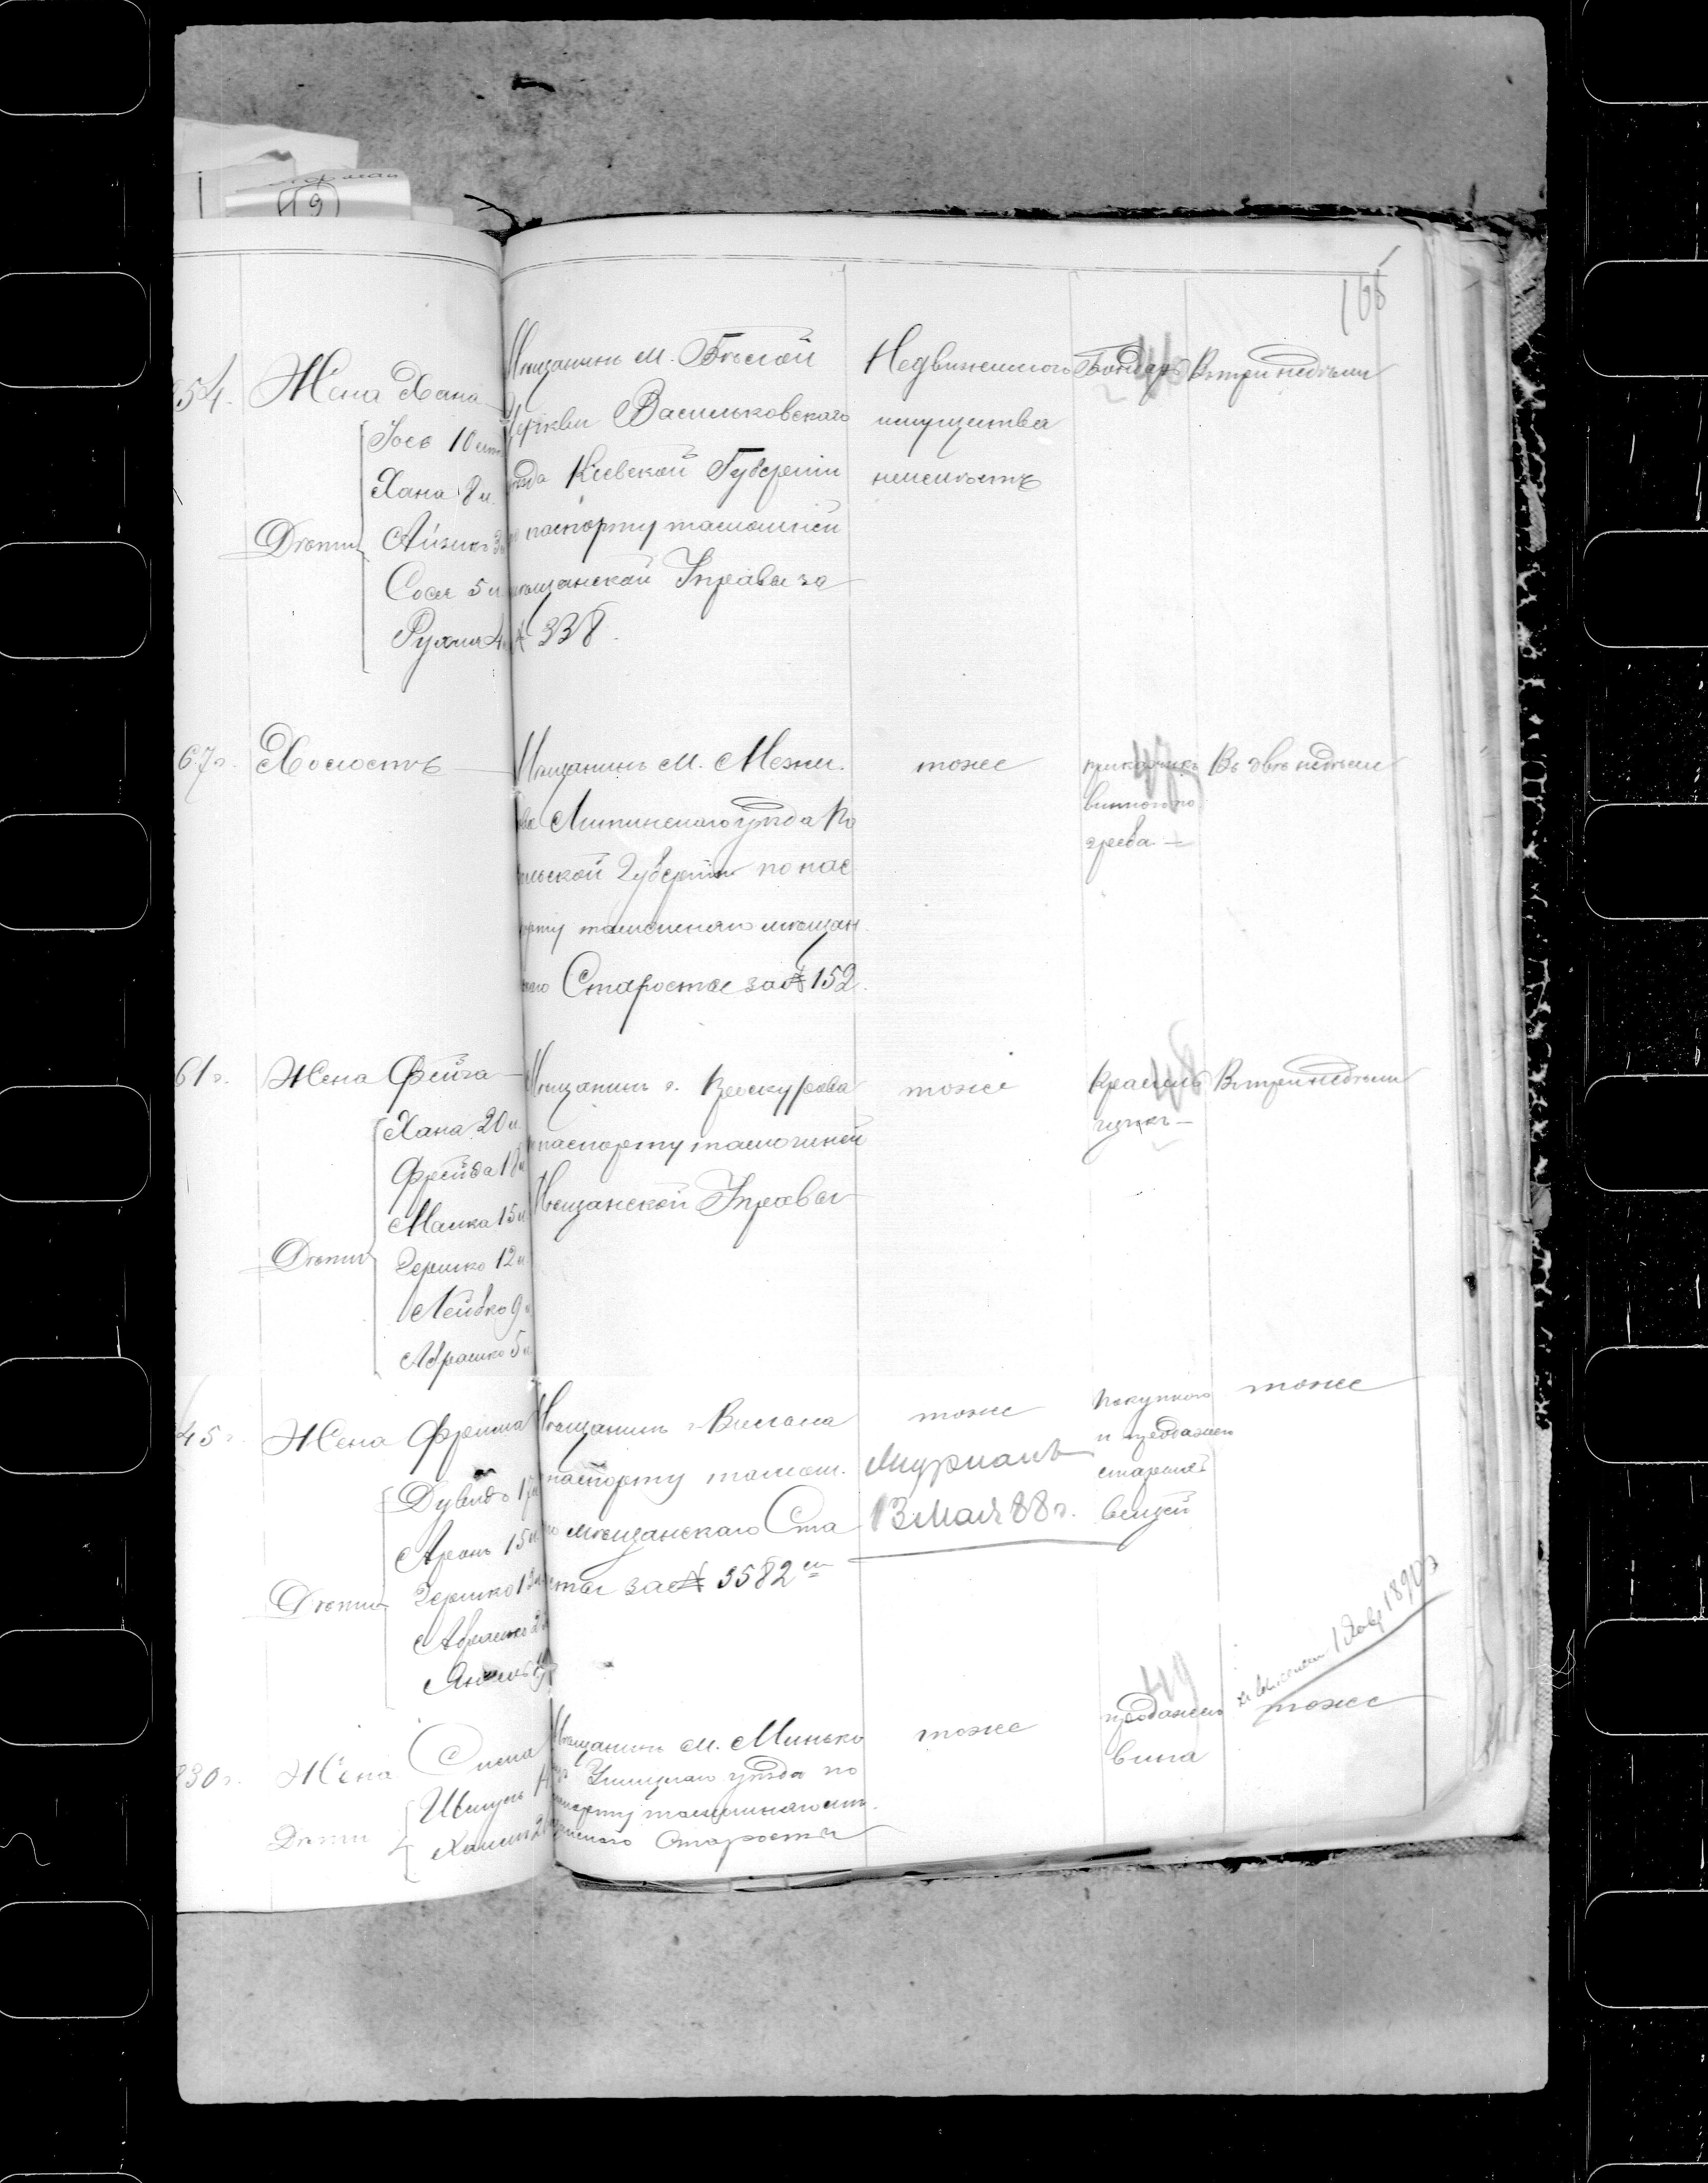 19
165
54. Жена Хана
Іось 10 лѣт
Хана 8 л.
Дѣти Айзикъ 3
Сося 5 л
Рухля 4
Мѣщанинъ м. Бѣлой
Церкви Васильковскаго
уѣзда Кіевской Губерніи
по паспорту тамошней
мѣщанской Управы за
№ 338.
Недвижимого
имущества
неимѣетъ
46
Бондарь
Въ три недѣли
67 г. Холостъ
Мѣщанинъ м. Межи
Литинскаго уѣзда По
дольской Губерніи по пас
порту тамошняго мѣщан
скаго Старосты за № 152.
тоже
47
прикащикъ
виннаго по
греба
Въ двѣ недѣли
61 г. Жена Фейга
Хана 20 л.
Фрейда 18 л
Малка 15 л
Дѣти Гершко 12 л
Лейбко 9 л
Абрашко 5 л
Мѣщанинъ г. Проскурова
по паспорту тамошней
Мѣщанской Управы
тоже
48
Красиль
щикъ
Въ три недѣли
45 г. Жена Фрима
Дувидъ 17 л
Аронъ 15 л
Дѣти Гершко 13 л
Абрашко 2 л
Мѣщанинъ г.
паспорту тамош.
го мѣщанскаго Ста
росты за № 3582
тоже
13 Мая 88 г.
Покупкою
и продажею
старыхъ
вещей
тоже
30 г. Жена
Дѣти Шмуль
Хаимъ 2
Мѣщанинъ м. Минько
вецъ Ушицкаго уѣзда по
паспорту тамошняго мѣ
щанскаго Старосты
тоже
49
продажею
вина
1890 г
тоже